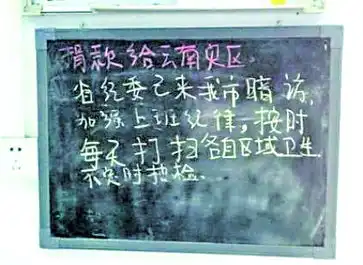 捐款给云南灾区.
省纪委已来我市暗访,
加强上班纪律,按时
每天打扫各自区域卫生
不定时抽检.